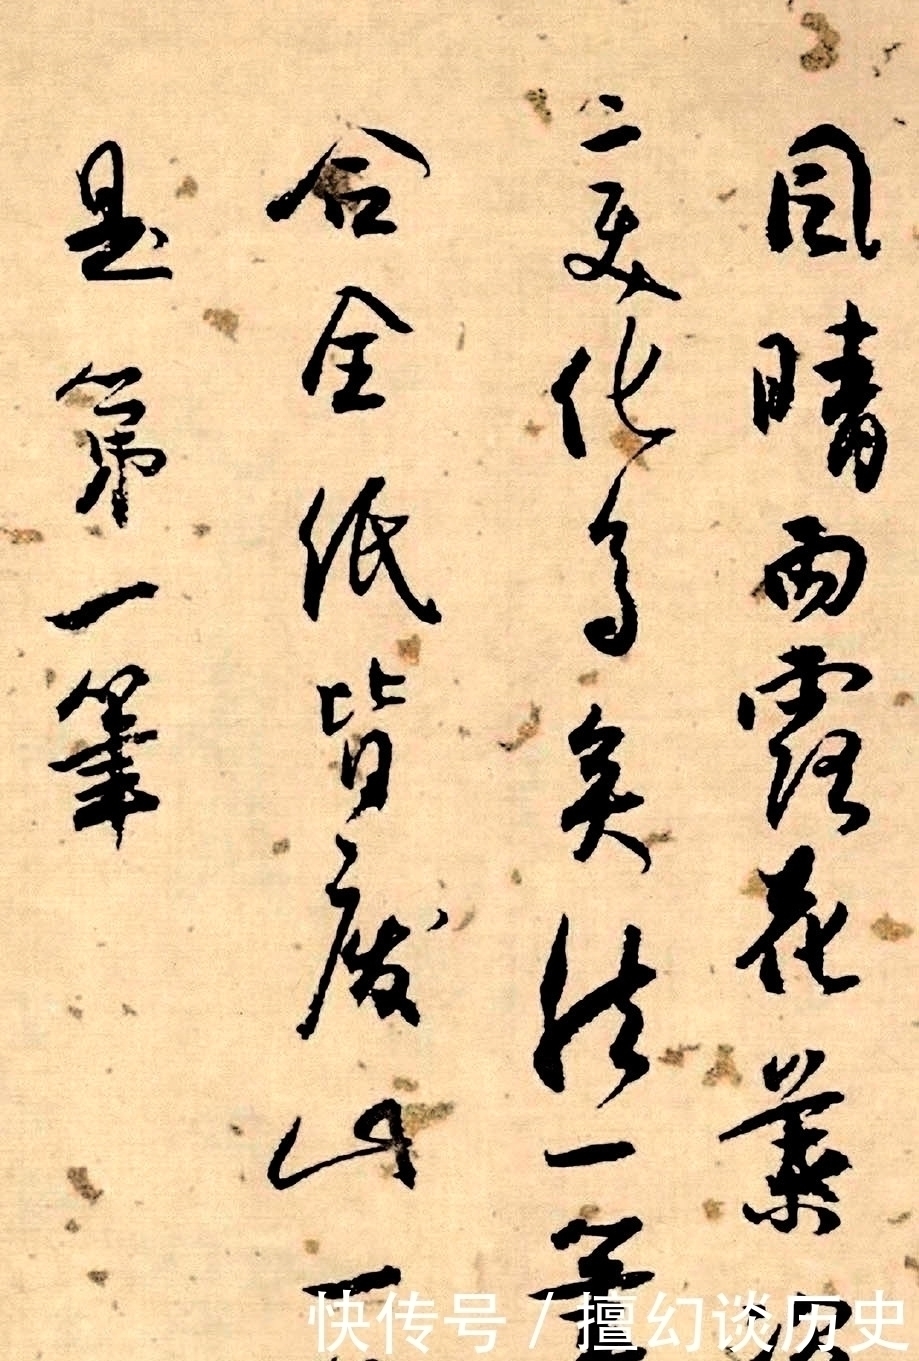 風晴雨露花葉須
變化矣法一筆
合全紙皆廢此一
是第一筆
快传号/擅幻谈历史